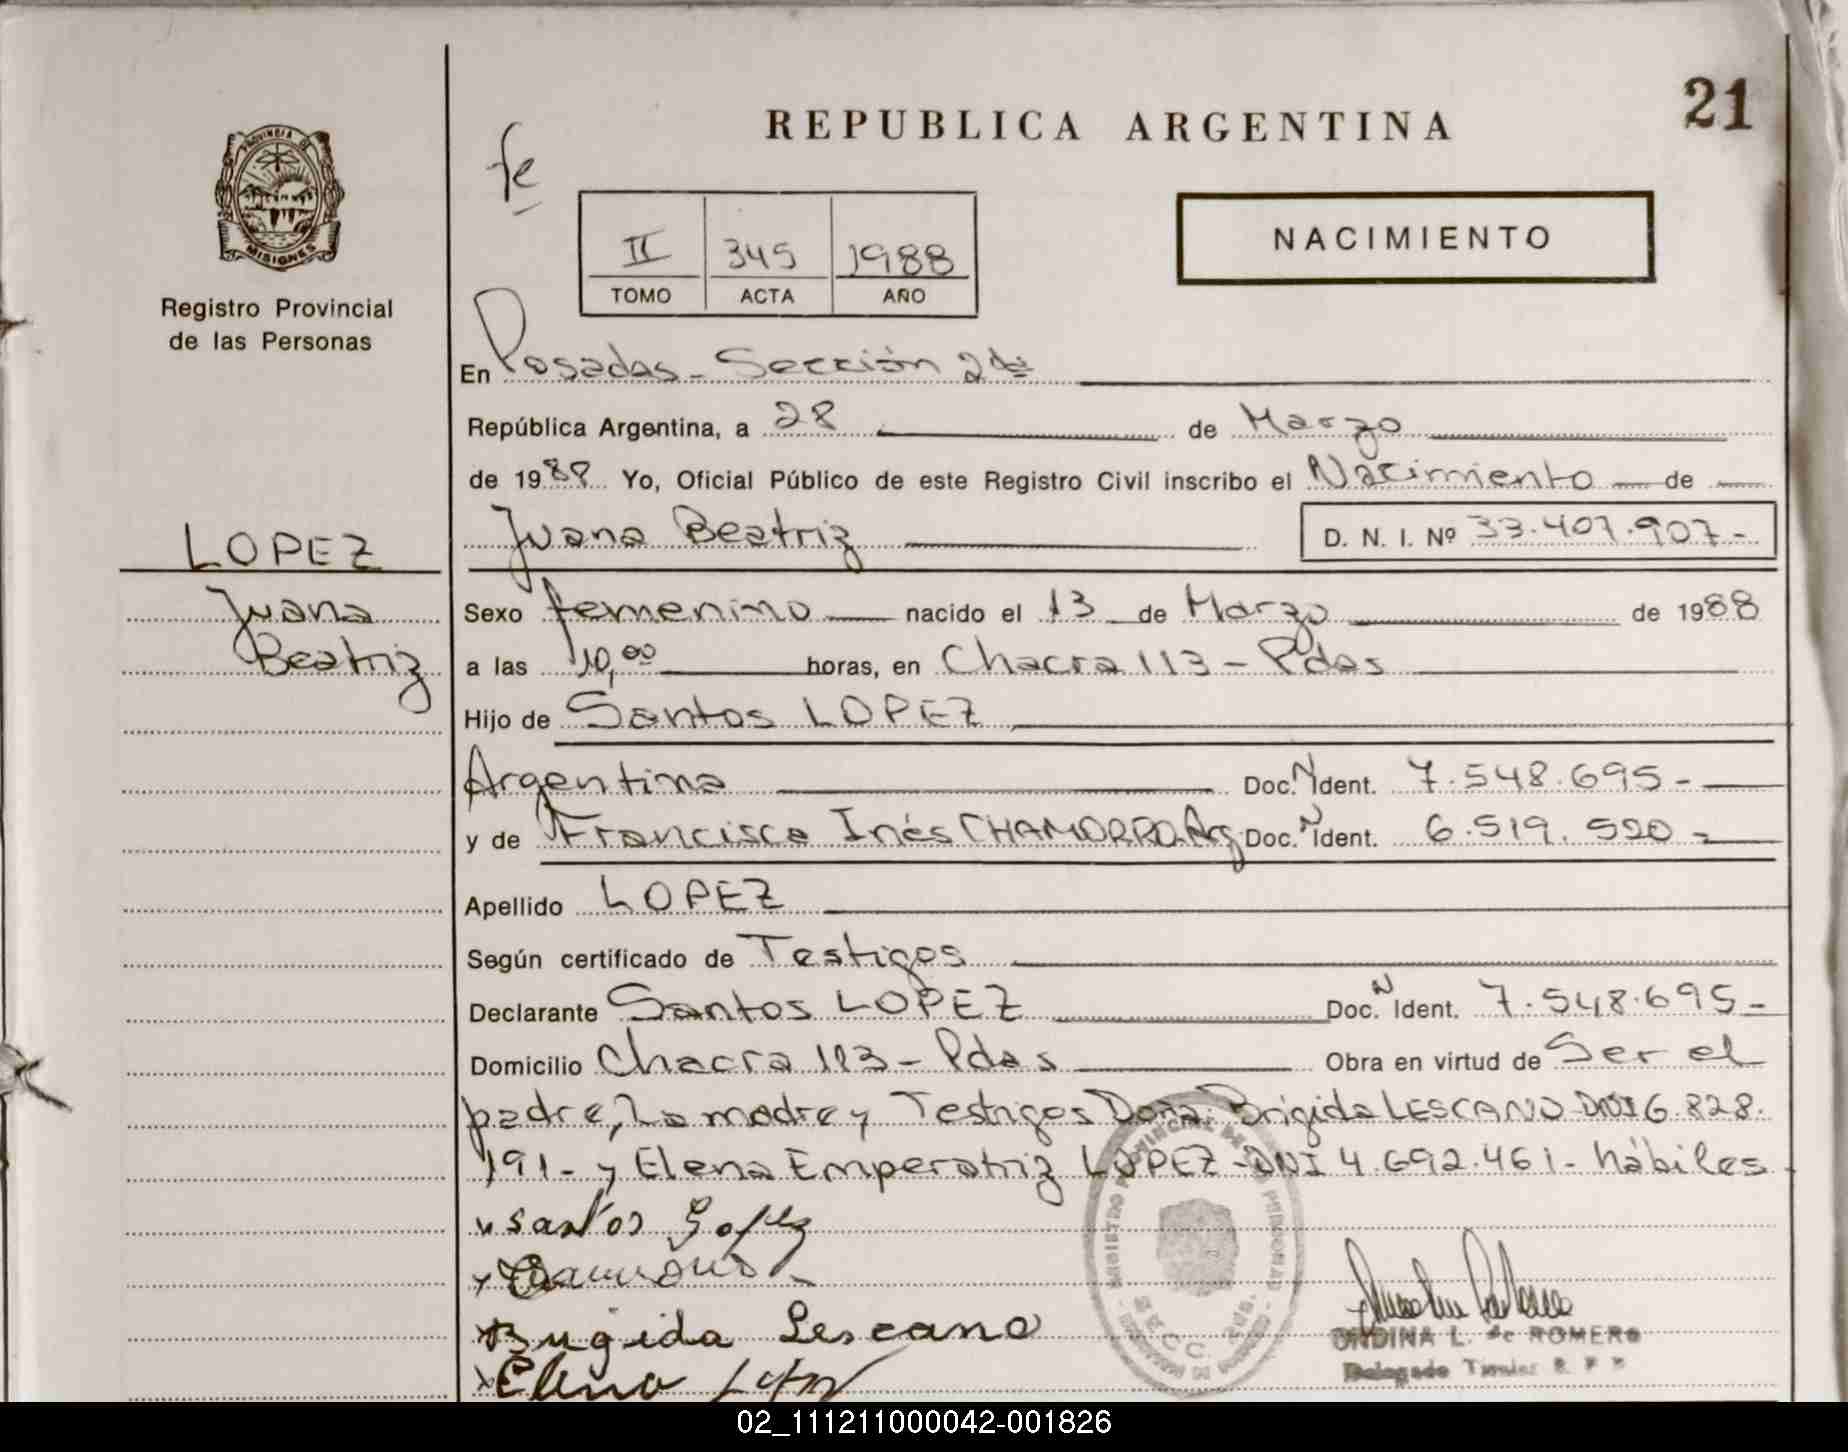 21
REPUBLICA ARGENTINA
PROVINCIA DE
MISIONES
Registro Provincial
de las Personas
fe
NACIMIENTO
II 345 1988
TOMO ACTA AÑO
En Posadas - Sección 2da
República Argentina, a 28 de Marzo
de 1988 Yo, Oficial Público de este Registro Civil inscribo el Nacimiento de
Juana Beatriz D. N. I. Nº 33.407.907-
LOPEZ
Juana
Beatriz
Sexo femenino nacido el 13 de Marzo de 1988
a las 10,00 horas, en Chacra 113 - Pdas
Hijo de Santos LOPEZ
Argentina Doc. N Ident. 7.548.695-
y de Francisca Inés CHAMORRO-Arg Doc. N Ident. 6.519.520-
Apellido LOPEZ
Según certificado de Testigos
Declarante Santos LOPEZ Doc. N Ident. 7.548.695-
Domicilio Chacra 113 - Pdas Obra en virtud de Ser el
padre, La madre y Testigos Doña: Brígida LESCANO DNI 6.828.
191- y Elena Emperatriz LOPEZ - DNI 4.692.461- hábiles
Santos Lopez
Brigida Lescano
Elena Lopez
ONDINA L. de ROMERO
Delegado Titular R. P. P.
02_111211000042-001826